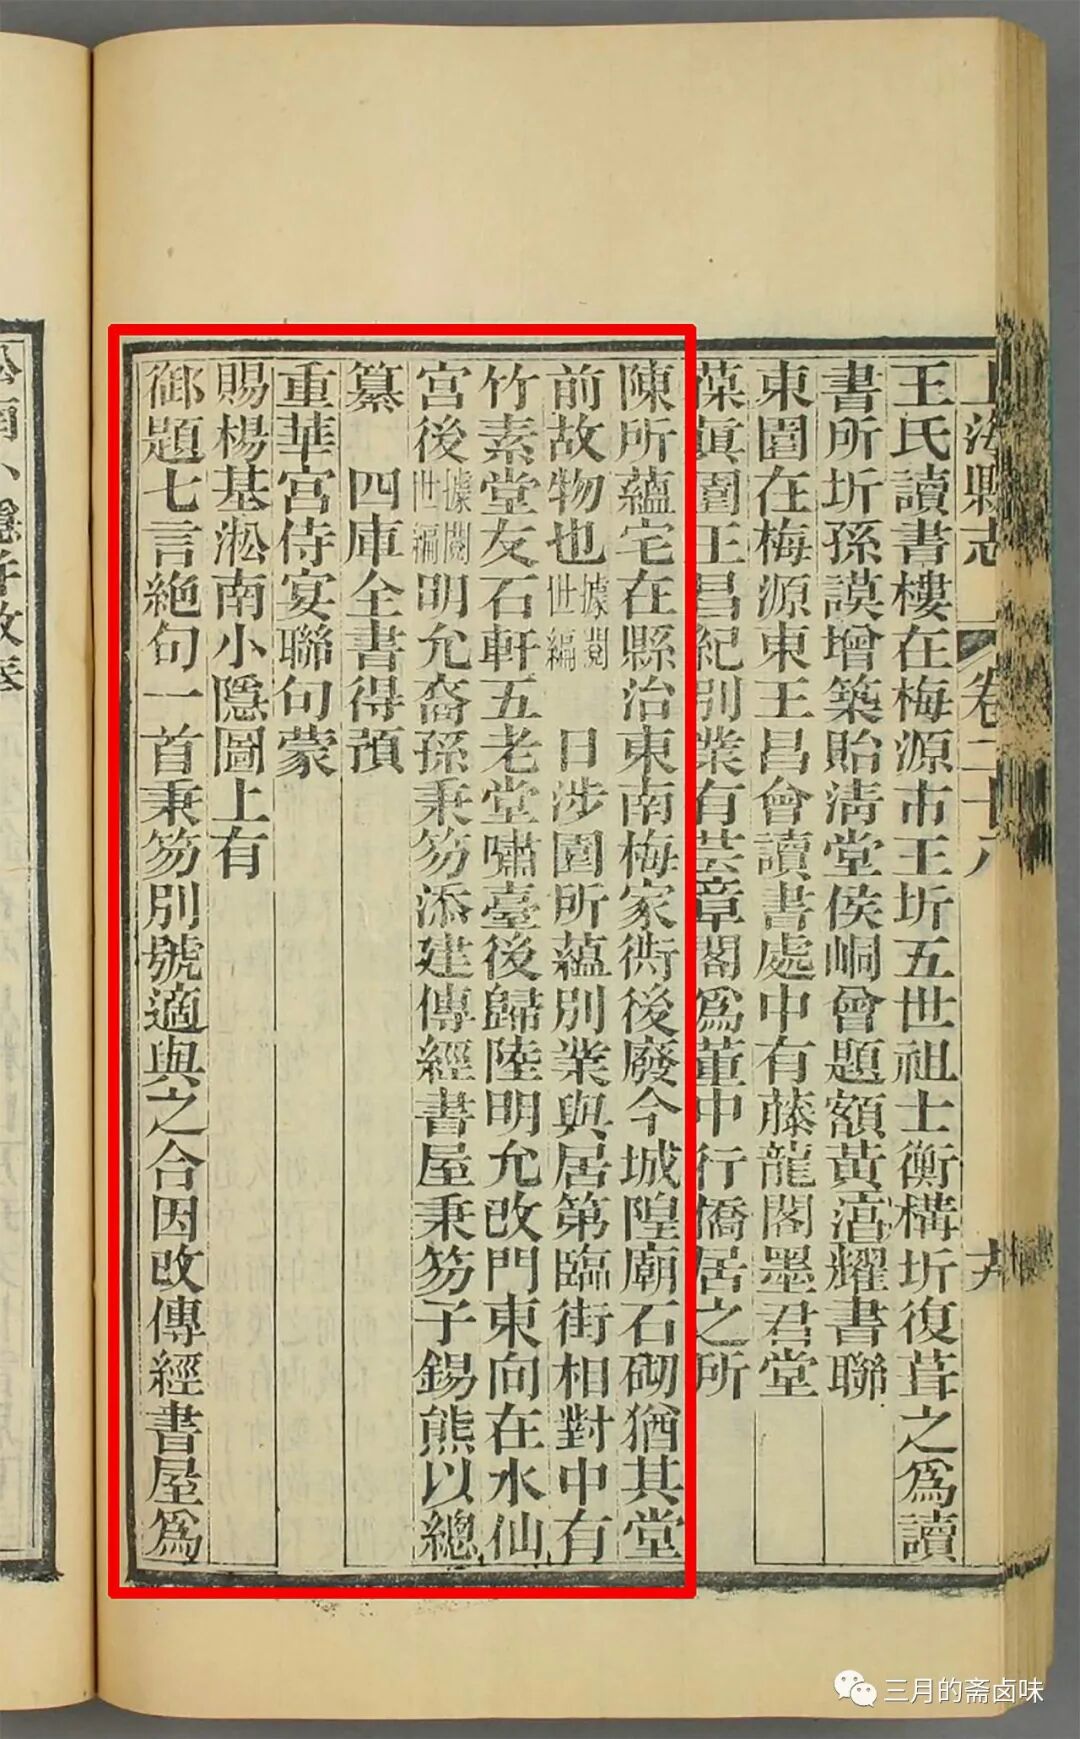 上海縣志
卷二十八
王氏讀書樓在梅源市王圻五世祖士衡構圻復葺之爲讀
書所圻孫謨增築貽淸堂侯峒曾題額黃淳耀書聯
東園在梅源東王昌會讀書處中有藤龍閣墨君堂
葆眞園王昌紀別業有芸章閣爲董中行僑居之所
陳所蘊宅在縣治東南梅家衖後廢今城隍廟石砌猶其堂
前故物也據閱世編 日涉園所蘊別業與居第臨街相對中有
竹素堂友石軒五老堂嘯臺後歸陸明允改門東向在水仙
宮後據閱世編明允裔孫秉笏添建傳經書屋秉笏子錫熊以總
纂 四庫全書得預
重華宮侍宴聯句蒙
賜楊基淞南小隱圖上有
御題七言絕句一首秉笏別號適與之合因改傳經書屋爲
三月的斋卤味